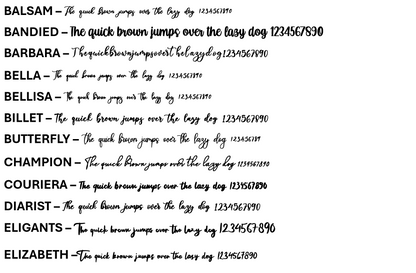 BALSAM – The quick brown jumps over the lazy dog 1234567890
BANDIED – The quick brown jumps over the lazy dog 1234567890
BARBARA – Thequickbrownjumpsoverthelazydog1234567890
BELLA – The quick brown jumps over the lazy dog 1234567890
BELLISA – The quick brown jumps over the lazy dog 1234567890
BILLET – The quick brown jumps over the lazy dog 1234567890
BUTTERFLY – The quick brown jumps over the lazy dog 123456789
CHAMPION – The quick brown jumps over the lazy dog 1234567890
COURIERA – The quick brown jumps over the lazy dog 1234567890
DIARIST – The quick brown jumps over the lazy dog 1234567890
ELIGANTS – The quick brown jumps over the lazy dog 1234567890
ELIZABETH – The quick brown jumps over the lazy dog 1234567890